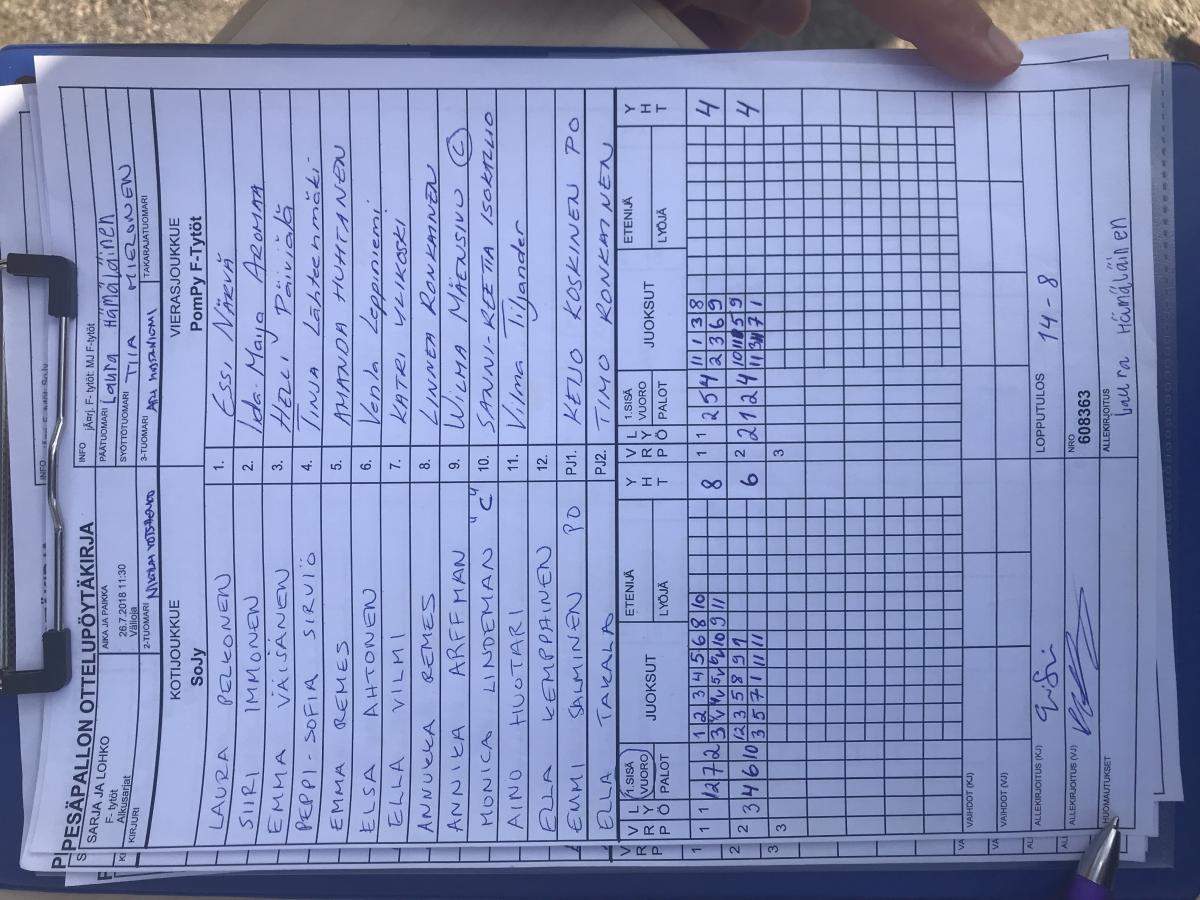 PESÄPALLON OTTELUPÖYTÄKIRJA
SARJA JA LOHKO
F- tytöt
Alkusarjat
KIRJURI
AIKA JA PAIKKA
26.7.2018 11:30
Välioja
2-TUOMARI
INFO
järj. F- tytöt: MJ F-tytöt
PÄÄTUOMARI Laura Hämäläinen
SYÖTTÖTUOMARI TIIA MIELONEN
3-TUOMARI
TAKARAJATUOMARI
KOTIJOUKKUE
SoJy
VIERASJOUKKUE
PomPy F-Tytöt
LAURA PELKONEN 1. ESSI NÄRVÄ
SIIRI IMMONEN 2. Iida-Maija AROMAA
EMMA VÄIJÄNEN 3. HELI Päiviälä
PEPPI-SOFIA SIRVIÖ 4. TINJA Lähteenmäki
EMMA REMES 5. AMANDA HUHTANEN
ELSA AHTONEN 6. Venla Leppiniemi
ELLA VILMI 7. KATRI YLIKOSKI
ANNUKKA REMES 8. LINNEA RONKAINEN
ANNIKA ARFFMAN 9. WILMA MÄENSIVU C
MONICA LINDEMAN "C" 10. SANNI-REETTA ISOKALLIO
AINO HUOTARI 11. Vilma Tiljander
ELLA KEMPPAINEN 12.
EMMI SALMINEN PO PJ1. KEIJO KOSKINEN PO
ELLA TAKALA PJ2. TIMO RONKAINEN
V R P L Y Ö 1.SISÄ VUORO PALOT JUOKSUT ETENIJÄ LYÖJÄ Y H T V R P L Y Ö 1.SISÄ VUORO PALOT JUOKSUT ETENIJÄ LYÖJÄ Y H T
1 1 12 7 2 1 2 3 4 5 6 8 10 8 1 1 2 5 4 11 1 3 8 4
2 3 6 9
2 3 4 6 10 12 3 5 8 9 1 6 2 2 12 4 4
3 5 7 11 11 11
3 3
VAIHDOT (KJ)
VAIHDOT (VJ)
ALLEKIRJOITUS (KJ)
LOPPUTULOS 14 - 8
ALLEKIRJOITUS (VJ)
NRO
608363
HUOMAUTUKSET
ALLEKIRJOITUS
Laura Hämäläinen